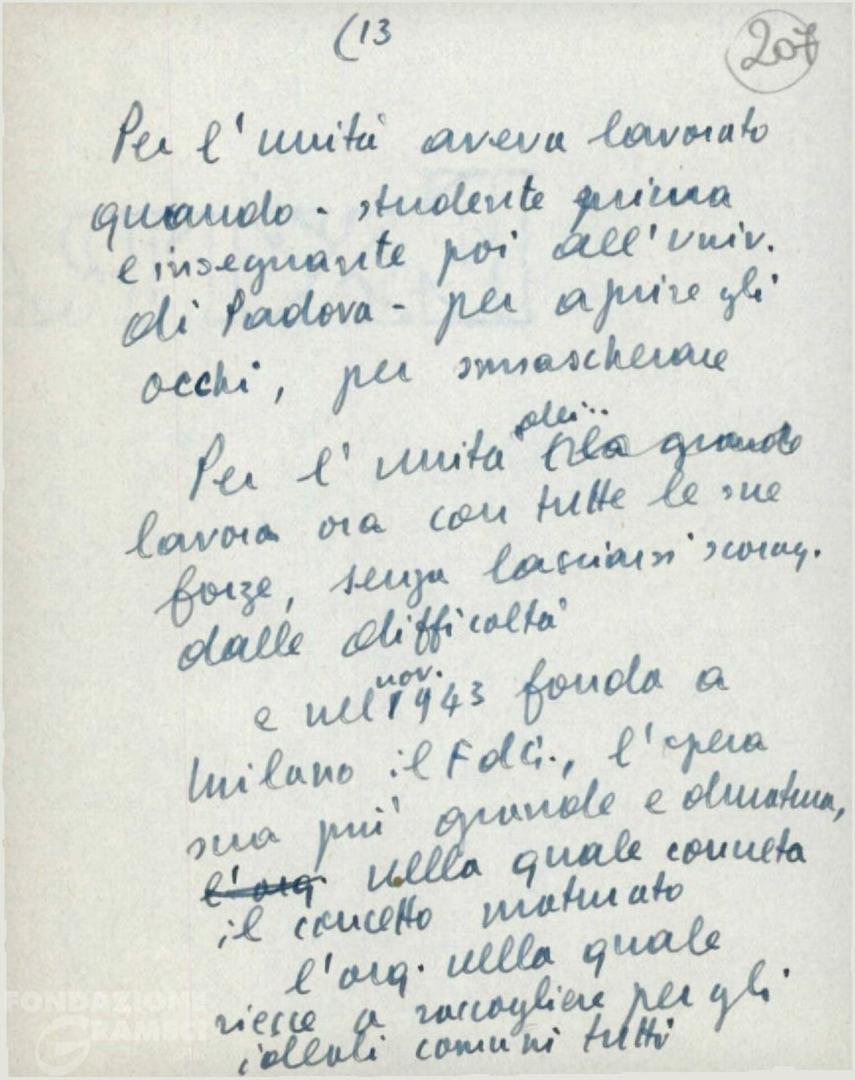 (13
207
Per l'unità aveva lavorato
quando - studente prima
e insegnante poi all'Univ.
di Padova - per aprire gli
occhi, per smascherare
Per l'unità la grande
lavora ora con tutte le sue
forze, senza lasciarsi scorag.
dalle difficoltà
nov.
e nel 1943 fonda a
Milano il FdG., l'opera
sua più grande e duratura,
l'org. nella quale concreta
il concetto maturato
l'org. nella quale
riesce a raccogliere per gli
ideali comuni tutti
FONDAZIONE
GRAMSCI